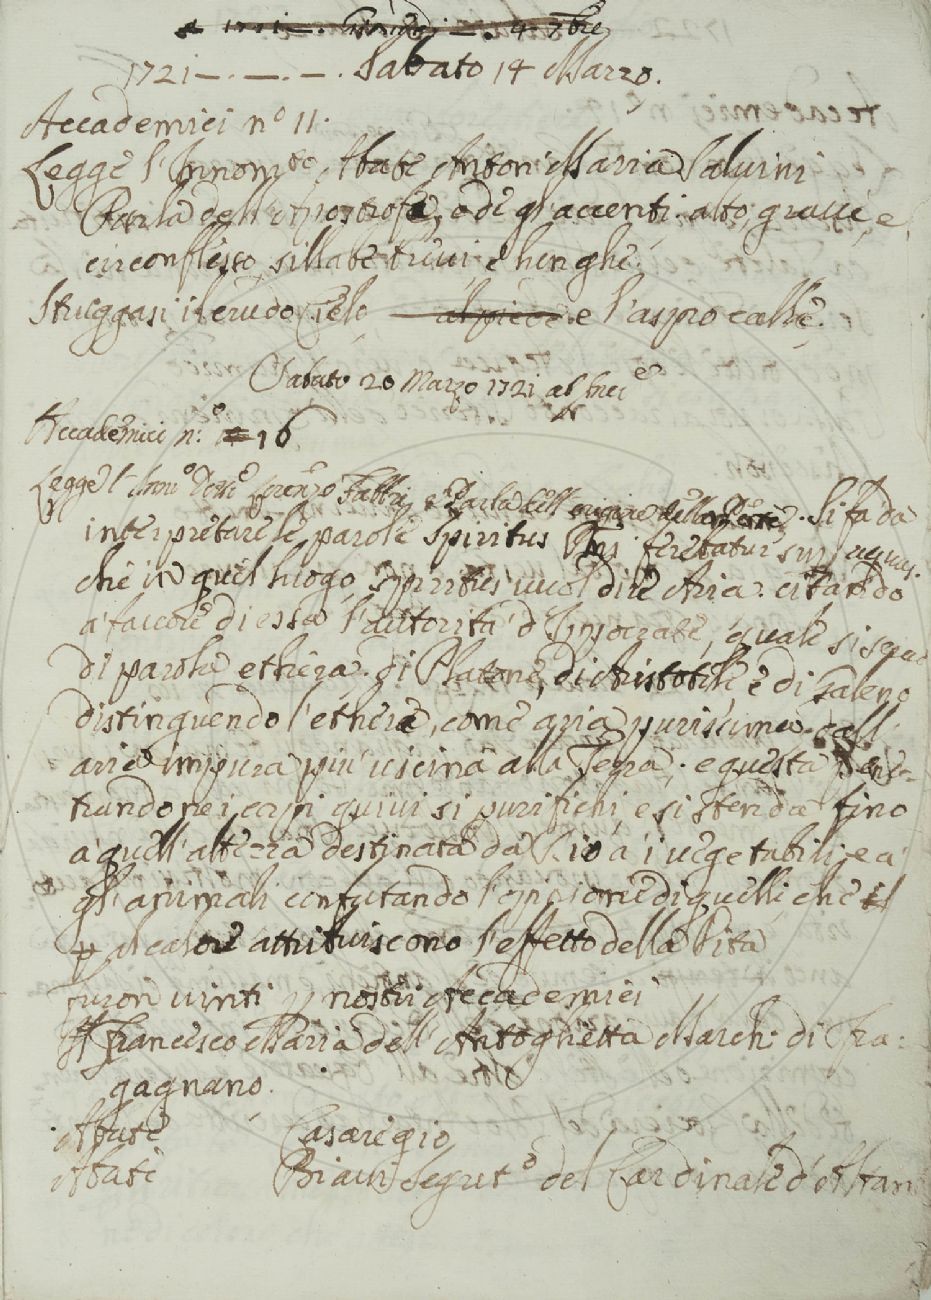 1721 — . — . — . Sabato 14 Marzo.
Accademici n° 11.
Legge l'Innom.to Abate Anton Maria Salvini
Parla dell'Apostrofe, e de gl'accenti alto, grave, e
circonflesso, sillabe brevi e lunghe.
Struggasi il crudo Gelo e l'aspro calle.
Sabato 20 Marzo 1721
Accademici n.° 16
Legge l' Lorenzo Fabbri e Parla dell' origine della . Si fa da
interpretare le parole Spiritus Dni ferebatur sup aquas.
che in quel luogo, spiritus vuol dire Aria. citando
a favore di essa l'autorità d'Ipocrate, quale si
di parole ethera. di Platone, di Aristotile e di Galeno
distinguendo l'ethera, come aria purissima dall'
aria impura più vicina alla Terra. e questa pene-
trando ne i corpi quivi si purifichi, e si stenda fino
a quell'altezza destinata da Dio a i vegetabili, e a
gl'animali confutando l'opinione di quelli che
al calore attribuiscono l'effetto della Vita
furon vinti p nostri Accademici
Francesco Maria dell'Antoghietta March: di Fra-
gagnano.
Abate Casaregio
Abate Segret.° del Cardinale d'